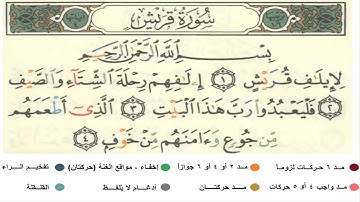 سُورَةُ قُرَيْشٍ
بِسْمِ ٱللَّهِ ٱلرَّحْمَٰنِ ٱلرَّحِيمِ
لِإِيلَٰفِ قُرَيْشٍ ﴿١﴾ إِۦلَٰفِهِمْ رِحْلَةَ ٱلشِّتَآءِ وَٱلصَّيْفِ
﴿٢﴾ فَلْيَعْبُدُوا۟ رَبَّ هَٰذَا ٱلْبَيْتِ ﴿٣﴾ ٱلَّذِىٓ أَطْعَمَهُم
مِّن جُوعٍ وَءَامَنَهُم مِّنْ خَوْفٍۭ ﴿٤﴾
مـد ٦ حركـات لزومـا مـد ٢ أو ٤ أو ٦ جوازاً إخفاء ، مواقع الغنة (حركتان) تفخيـم الـراء
مد واجب ٤ أو ٥ حركات مـد حركتـــان أدغـام لا يُلفـظ القلقلـة